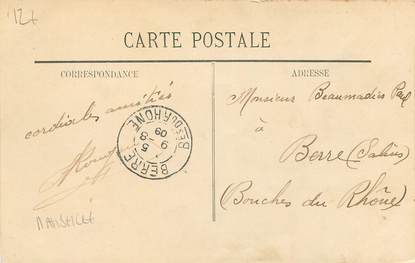 CARTE POSTALE
CORRESPONDANCE
cordiales amitiés
ADRESSE
Monsieur Beaumadier Paul
à
Berre (Salins)
Bouches du Rhône
BERRE
5 - 8
09
BES DU RHONE
MARSEILLE